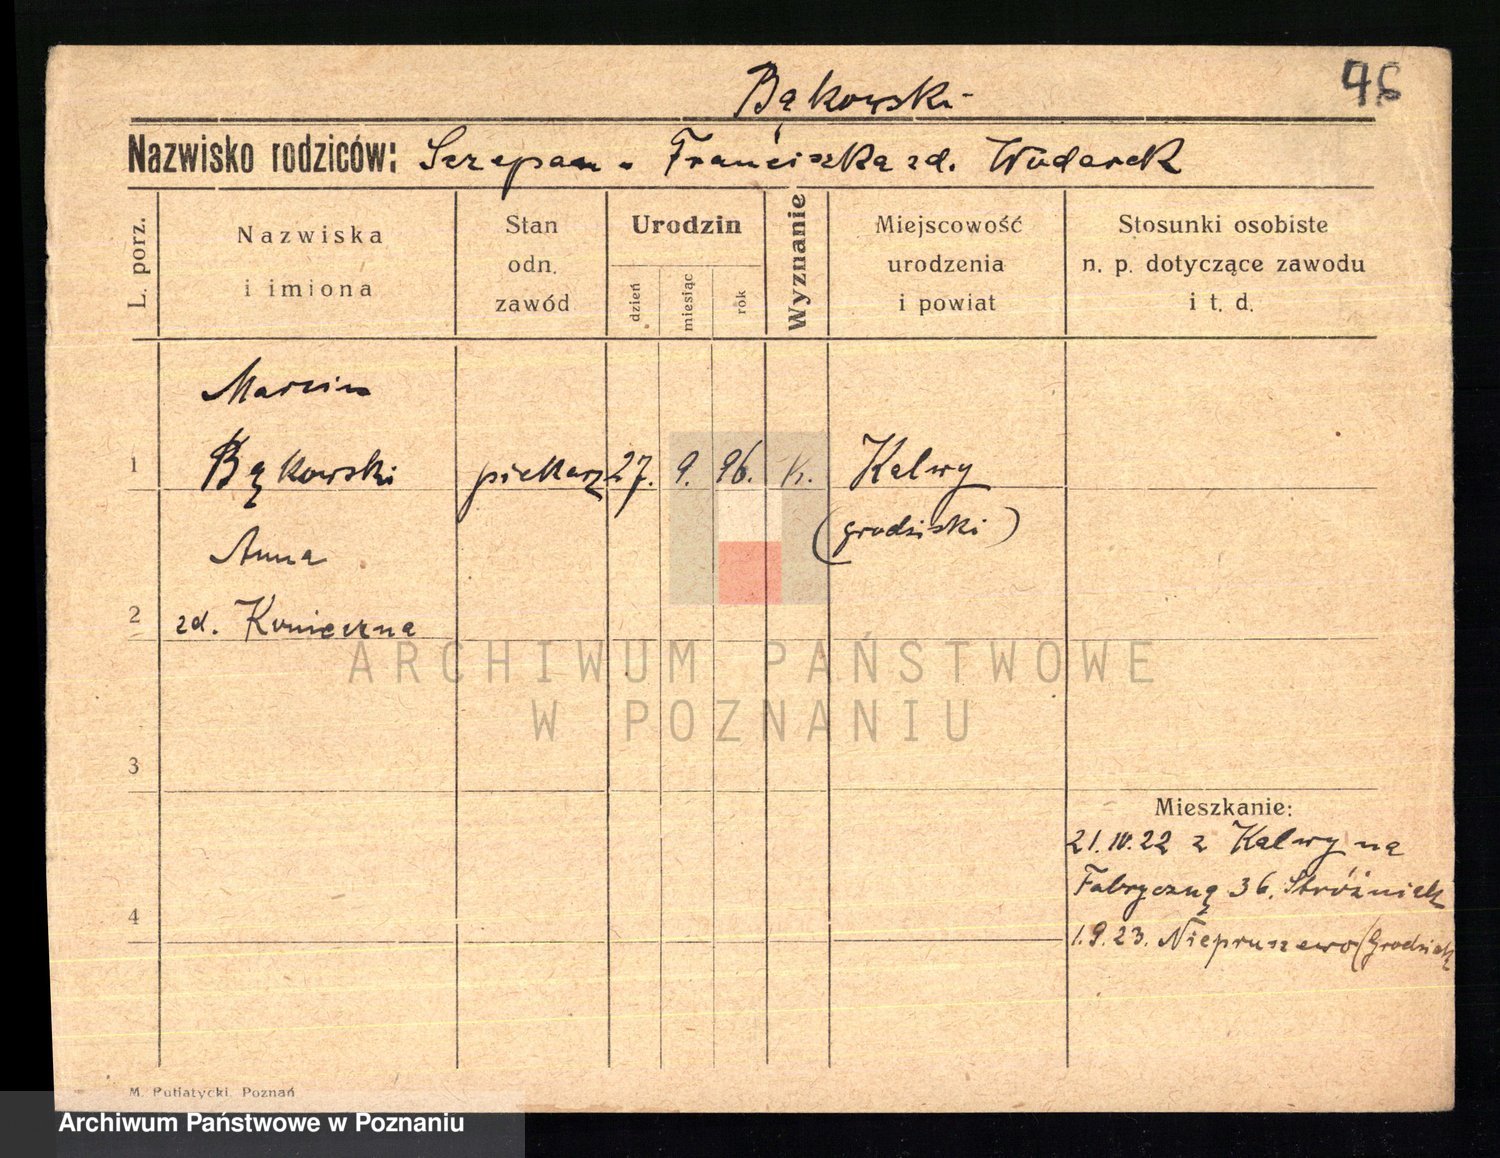 46
Bąkowski
Nazwisko rodziców: Szczepan – Franciszka zd. Wodarek
L. porz.
Nazwiska
i imiona
Stan
odn.
zawód
Urodzin
dzień
miesiąc
rok
Wyznanie
Miejscowość
urodzenia
i powiat
Stosunki osobiste
n. p. dotyczące zawodu
i t. d.
Marcin
1 Bąkowski piekarz 27. 9. 96. k. Kalwy
(grodziski)
Anna
2 zd. Konieczna
ARCHIWUM PAŃSTWOWE
W POZNANIU
3
Mieszkanie:
21.IV.22 z Kalwy na
Fabryczną 36. Stróżniak
4
1.9.23. Niepruszewo (Grodzisk
M. Putiatycki, Poznań
Archiwum Państwowe w Poznaniu